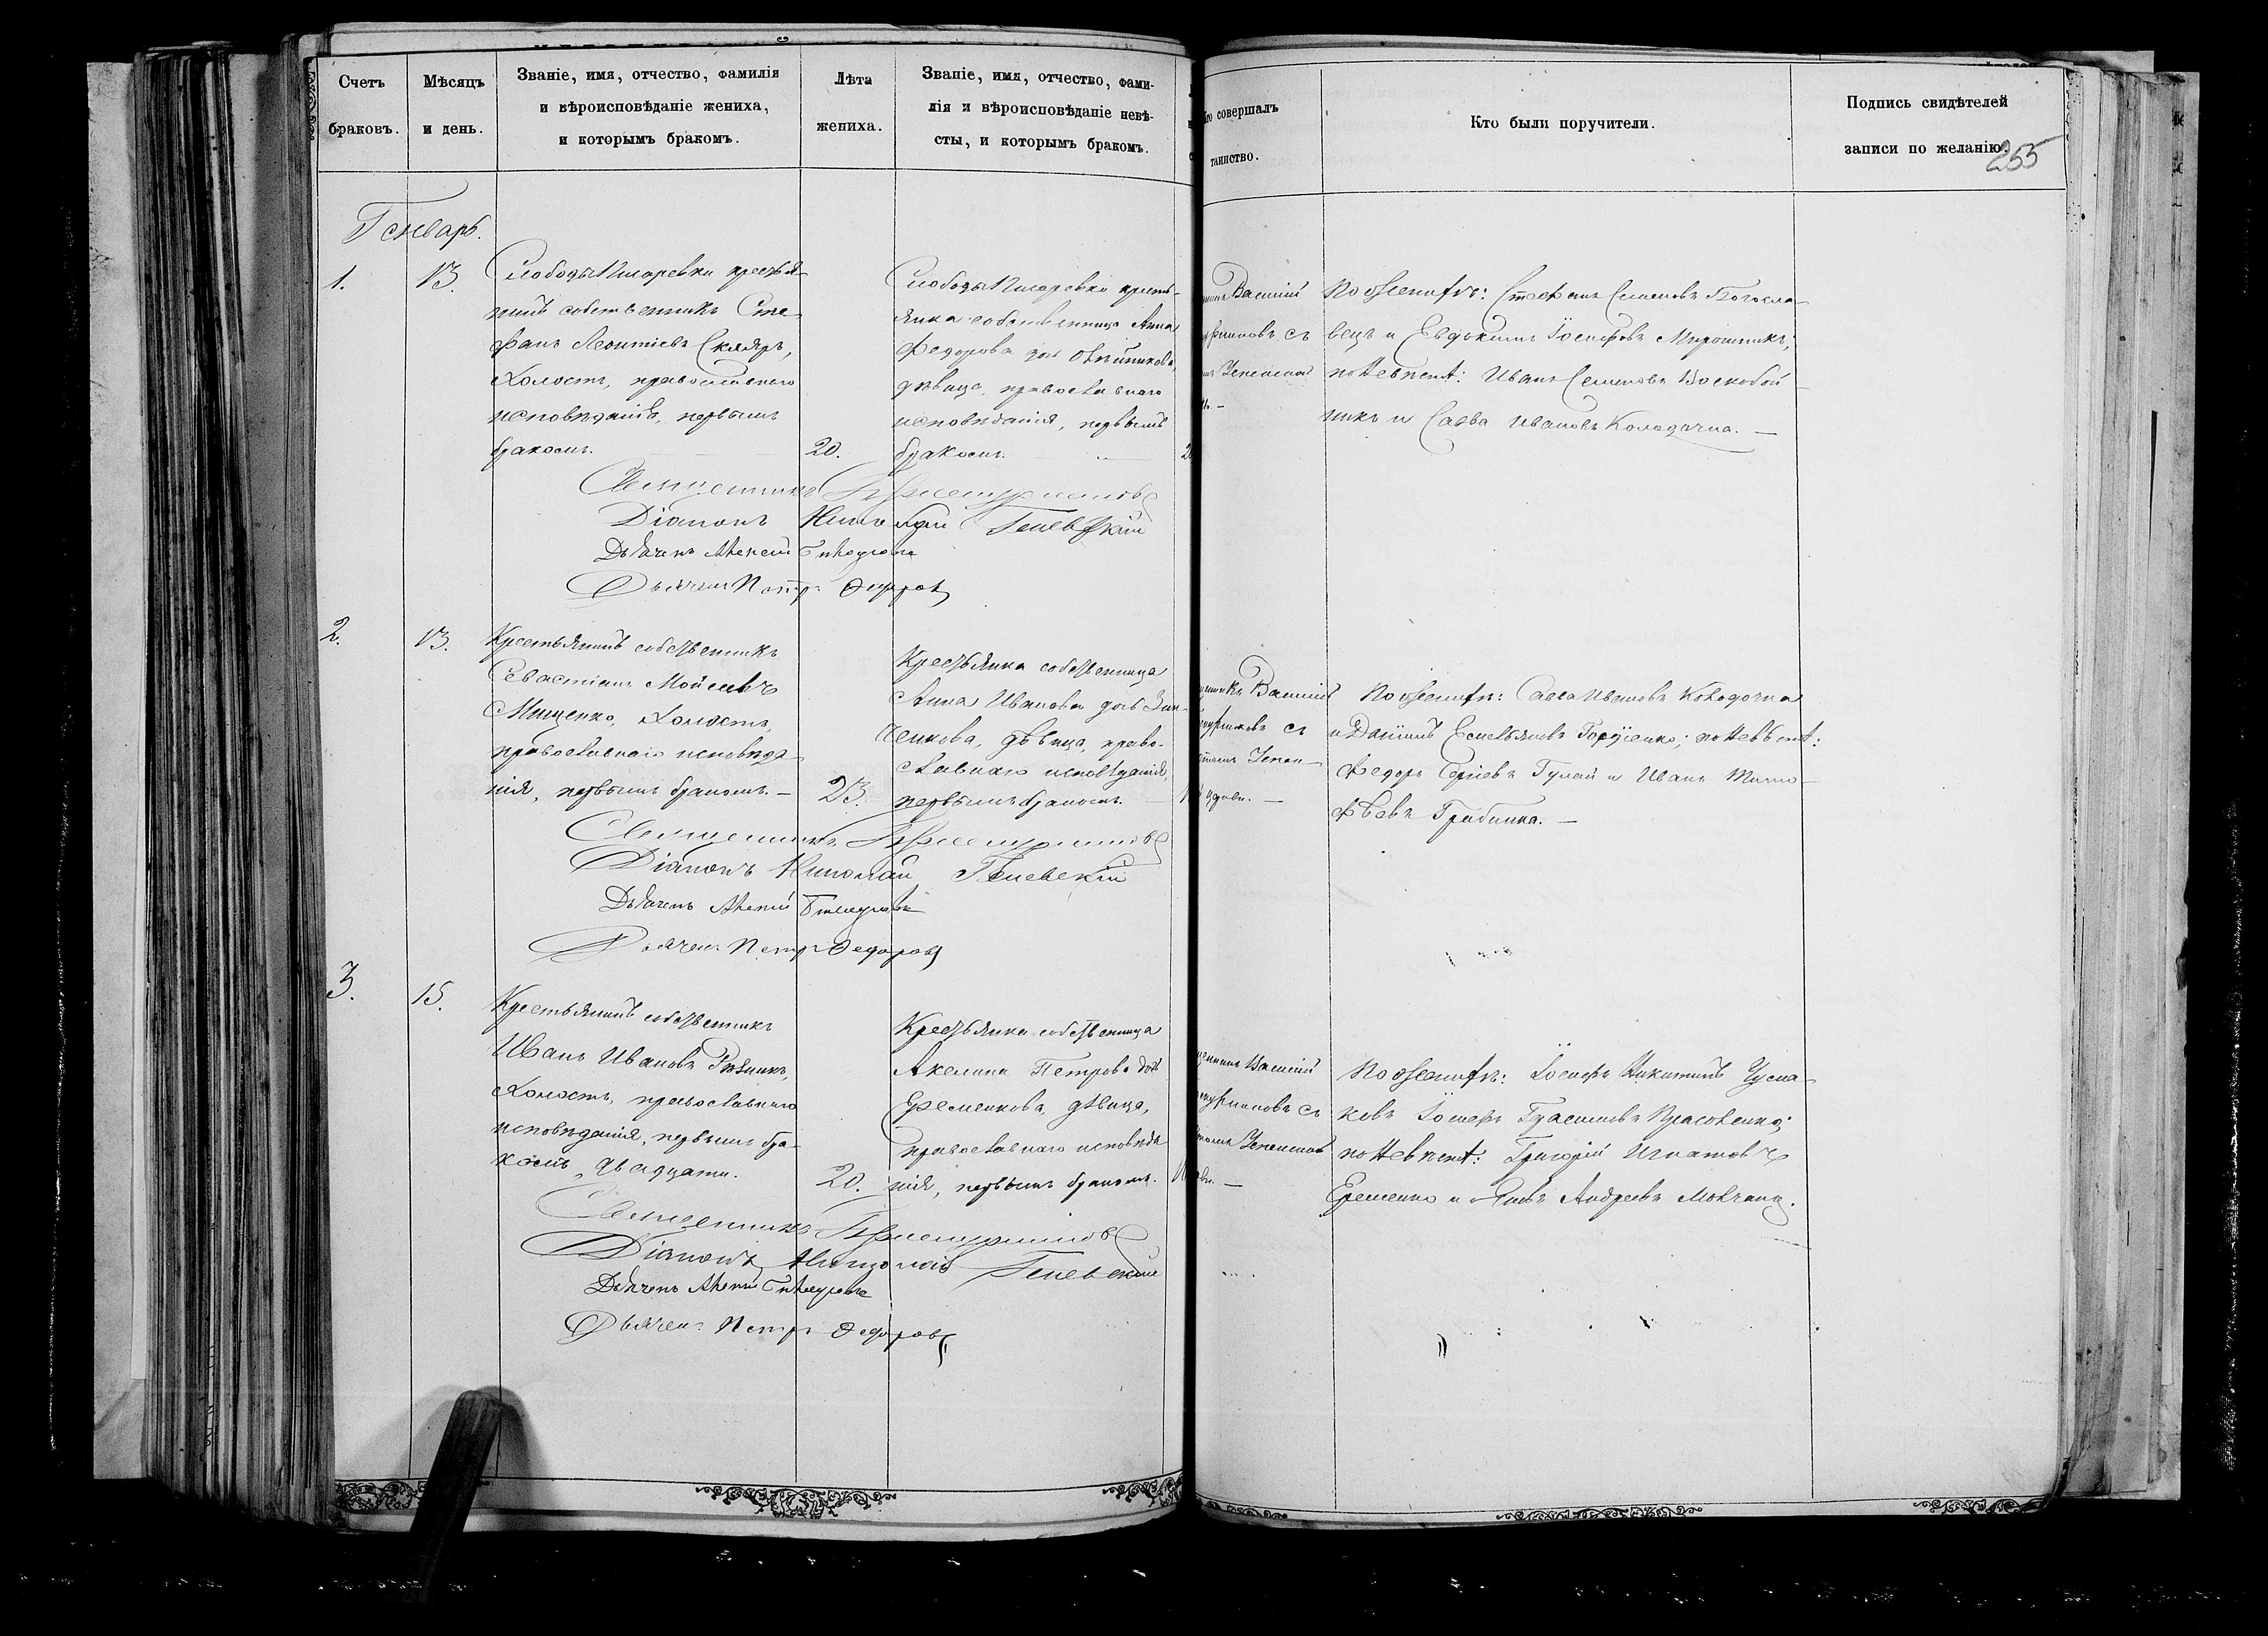 Счетъ
браковъ.
Мѣсяцъ
и день.
Званіе, имя, отчество, фамилія
и вѣроисповѣданіе жениха,
и которымъ бракомъ.
Лѣта
жениха.
Званіе, имя, отчество, фами-
лія и вѣроисповѣданіе невѣ-
сты, и которымъ бракомъ.
совершалъ
таинство.
Кто были поручители.
Подпись свидѣтелей
записи по желанію.
255
Генварь.
1.
13.
Слободы Писаревки крестья-
нинъ собственникъ Сте-
фанъ Леонтіевъ Скляръ,
холостъ, православнаго
исповѣданія, первымъ
бракомъ.
20.
Слободы Писаревки кресть-
янка собственница Анна
Федорова дочь
дѣвица, православнаго
исповѣданія, первымъ
бракомъ.
Василій
съ
По женихѣ: Стефанъ Семеновъ Богосла-
вецъ и Евдокимъ Іосифовъ Мирошникъ;
по невѣстѣ: Иванъ Семеновъ Воскобой-
никъ и Савва Ивановъ Колодочка. —
Священникъ
Діаконъ Николай
Дьячекъ Алексій
Дьячекъ Петръ Федоровъ
2.
13.
Крестьянинъ собственникъ
Севастіанъ Мойсеевъ
Мищенко, холостъ,
православнаго исповѣда-
нія, первымъ бракомъ. —
23.
Крестьянка собственница
Анна Иванова дочь Зин-
ченкова, дѣвица, право-
славнаго исповѣданія,
первымъ бракомъ. —
Василій
съ
По женихѣ: Савва Ивановъ Колодочка
и Даніилъ Емельяновъ; по невѣстѣ:
Федоръ Сергіевъ Гулай и Иванъ Тимо-
фѣевъ Грибинка. —
Священникъ
Діаконъ Николай
Дьячекъ Алексій
Дьячекъ Петръ Федоровъ
3.
15.
Крестьянинъ собственникъ
Иванъ Ивановъ Рѣзникъ,
холостъ, православнаго
исповѣданія, первымъ бра-
комъ, двадцати.
20.
Крестьянка собственница
Акелина Петрова дочь
Еременкова, дѣвица,
православнаго исповѣда-
нія, первымъ бракомъ.
Василій
съ
По женихѣ: Іосифъ Никитинъ Чума-
ковъ Іосифъ Герасимовъ;
по невѣстѣ: Григорій Игнатовъ
Еременко и Андреевъ
Священникъ
Діаконъ Николай
Дьячекъ Алексій
Дьячекъ Петръ Федоровъ